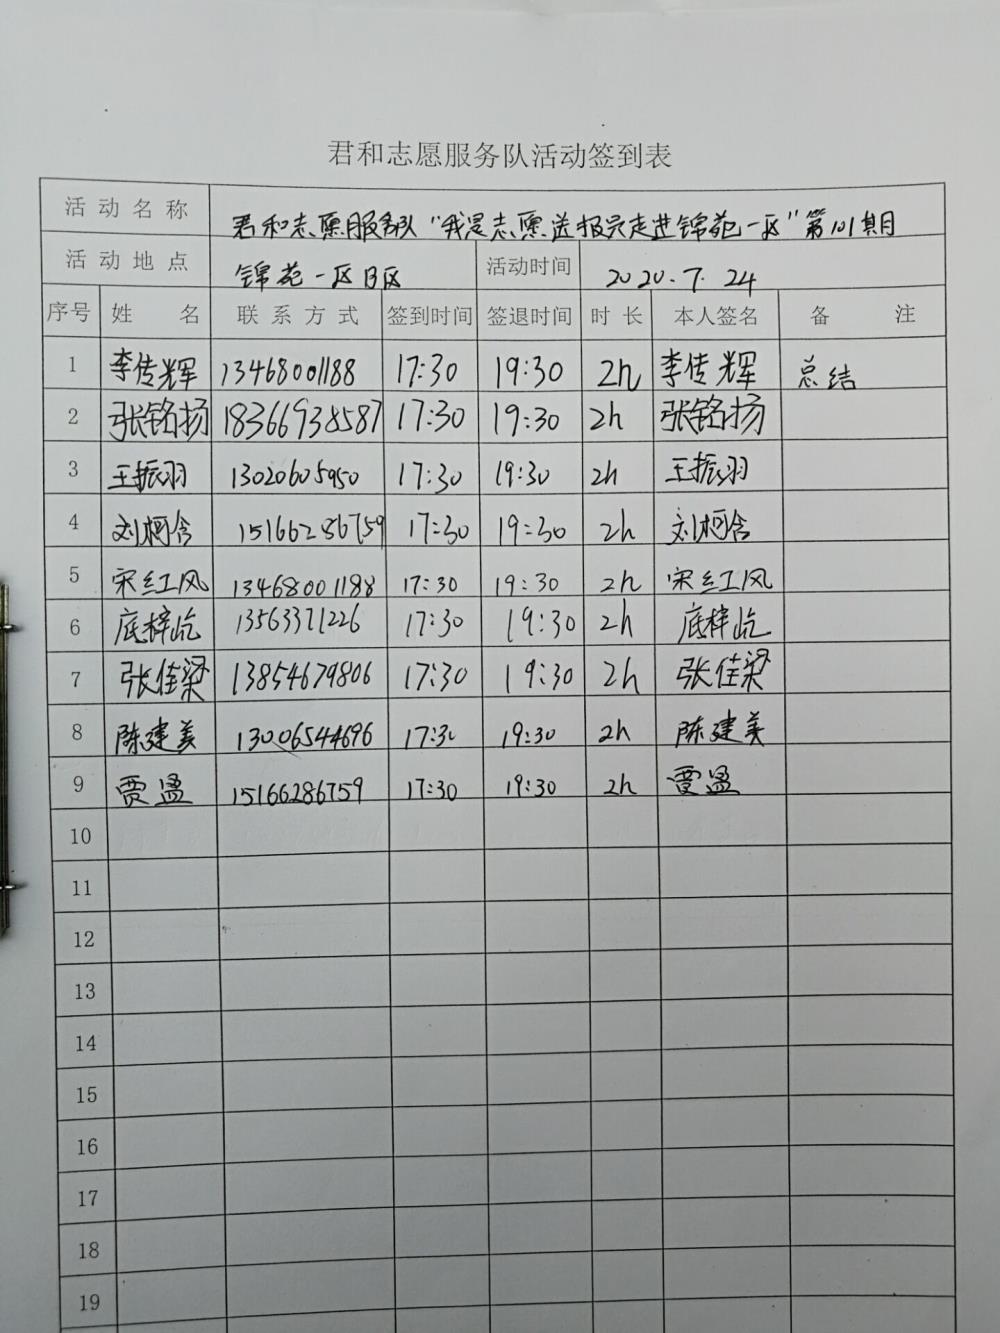 君和志愿服务队活动签到表
活动名称 君和志愿服务队“我是志愿送报员走进锦苑一区”第101期
活动地点 锦苑一区B区 活动时间 2020.7.24
序号 姓名 联系方式 签到时间 签退时间 时长 本人签名 备注
1 李传辉 13468001188 17:30 19:30 2h 李传辉 总结
2 张铭扬 18366938587 17:30 19:30 2h 张铭扬
3 王振羽 13020605950 17:30 19:30 2h 王振羽
4 刘柯含 15166286759 17:30 19:30 2h 刘柯含
5 宋红风 13468001188 17:30 19:30 2h 宋红风
6 底梓屹 13563371226 17:30 19:30 2h 底梓屹
7 张佳梁 13854679806 17:30 19:30 2h 张佳梁
8 陈建美 13006544696 17:30 19:30 2h 陈建美
9 贾 15166286759 17:30 19:30 2h 贾
10
11
12
13
14
15
16
17
18
19